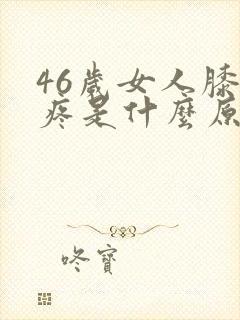 46歲女人膝
疼是什麼原
咚寶